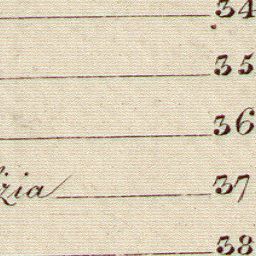 34
35
36
zia 37
38